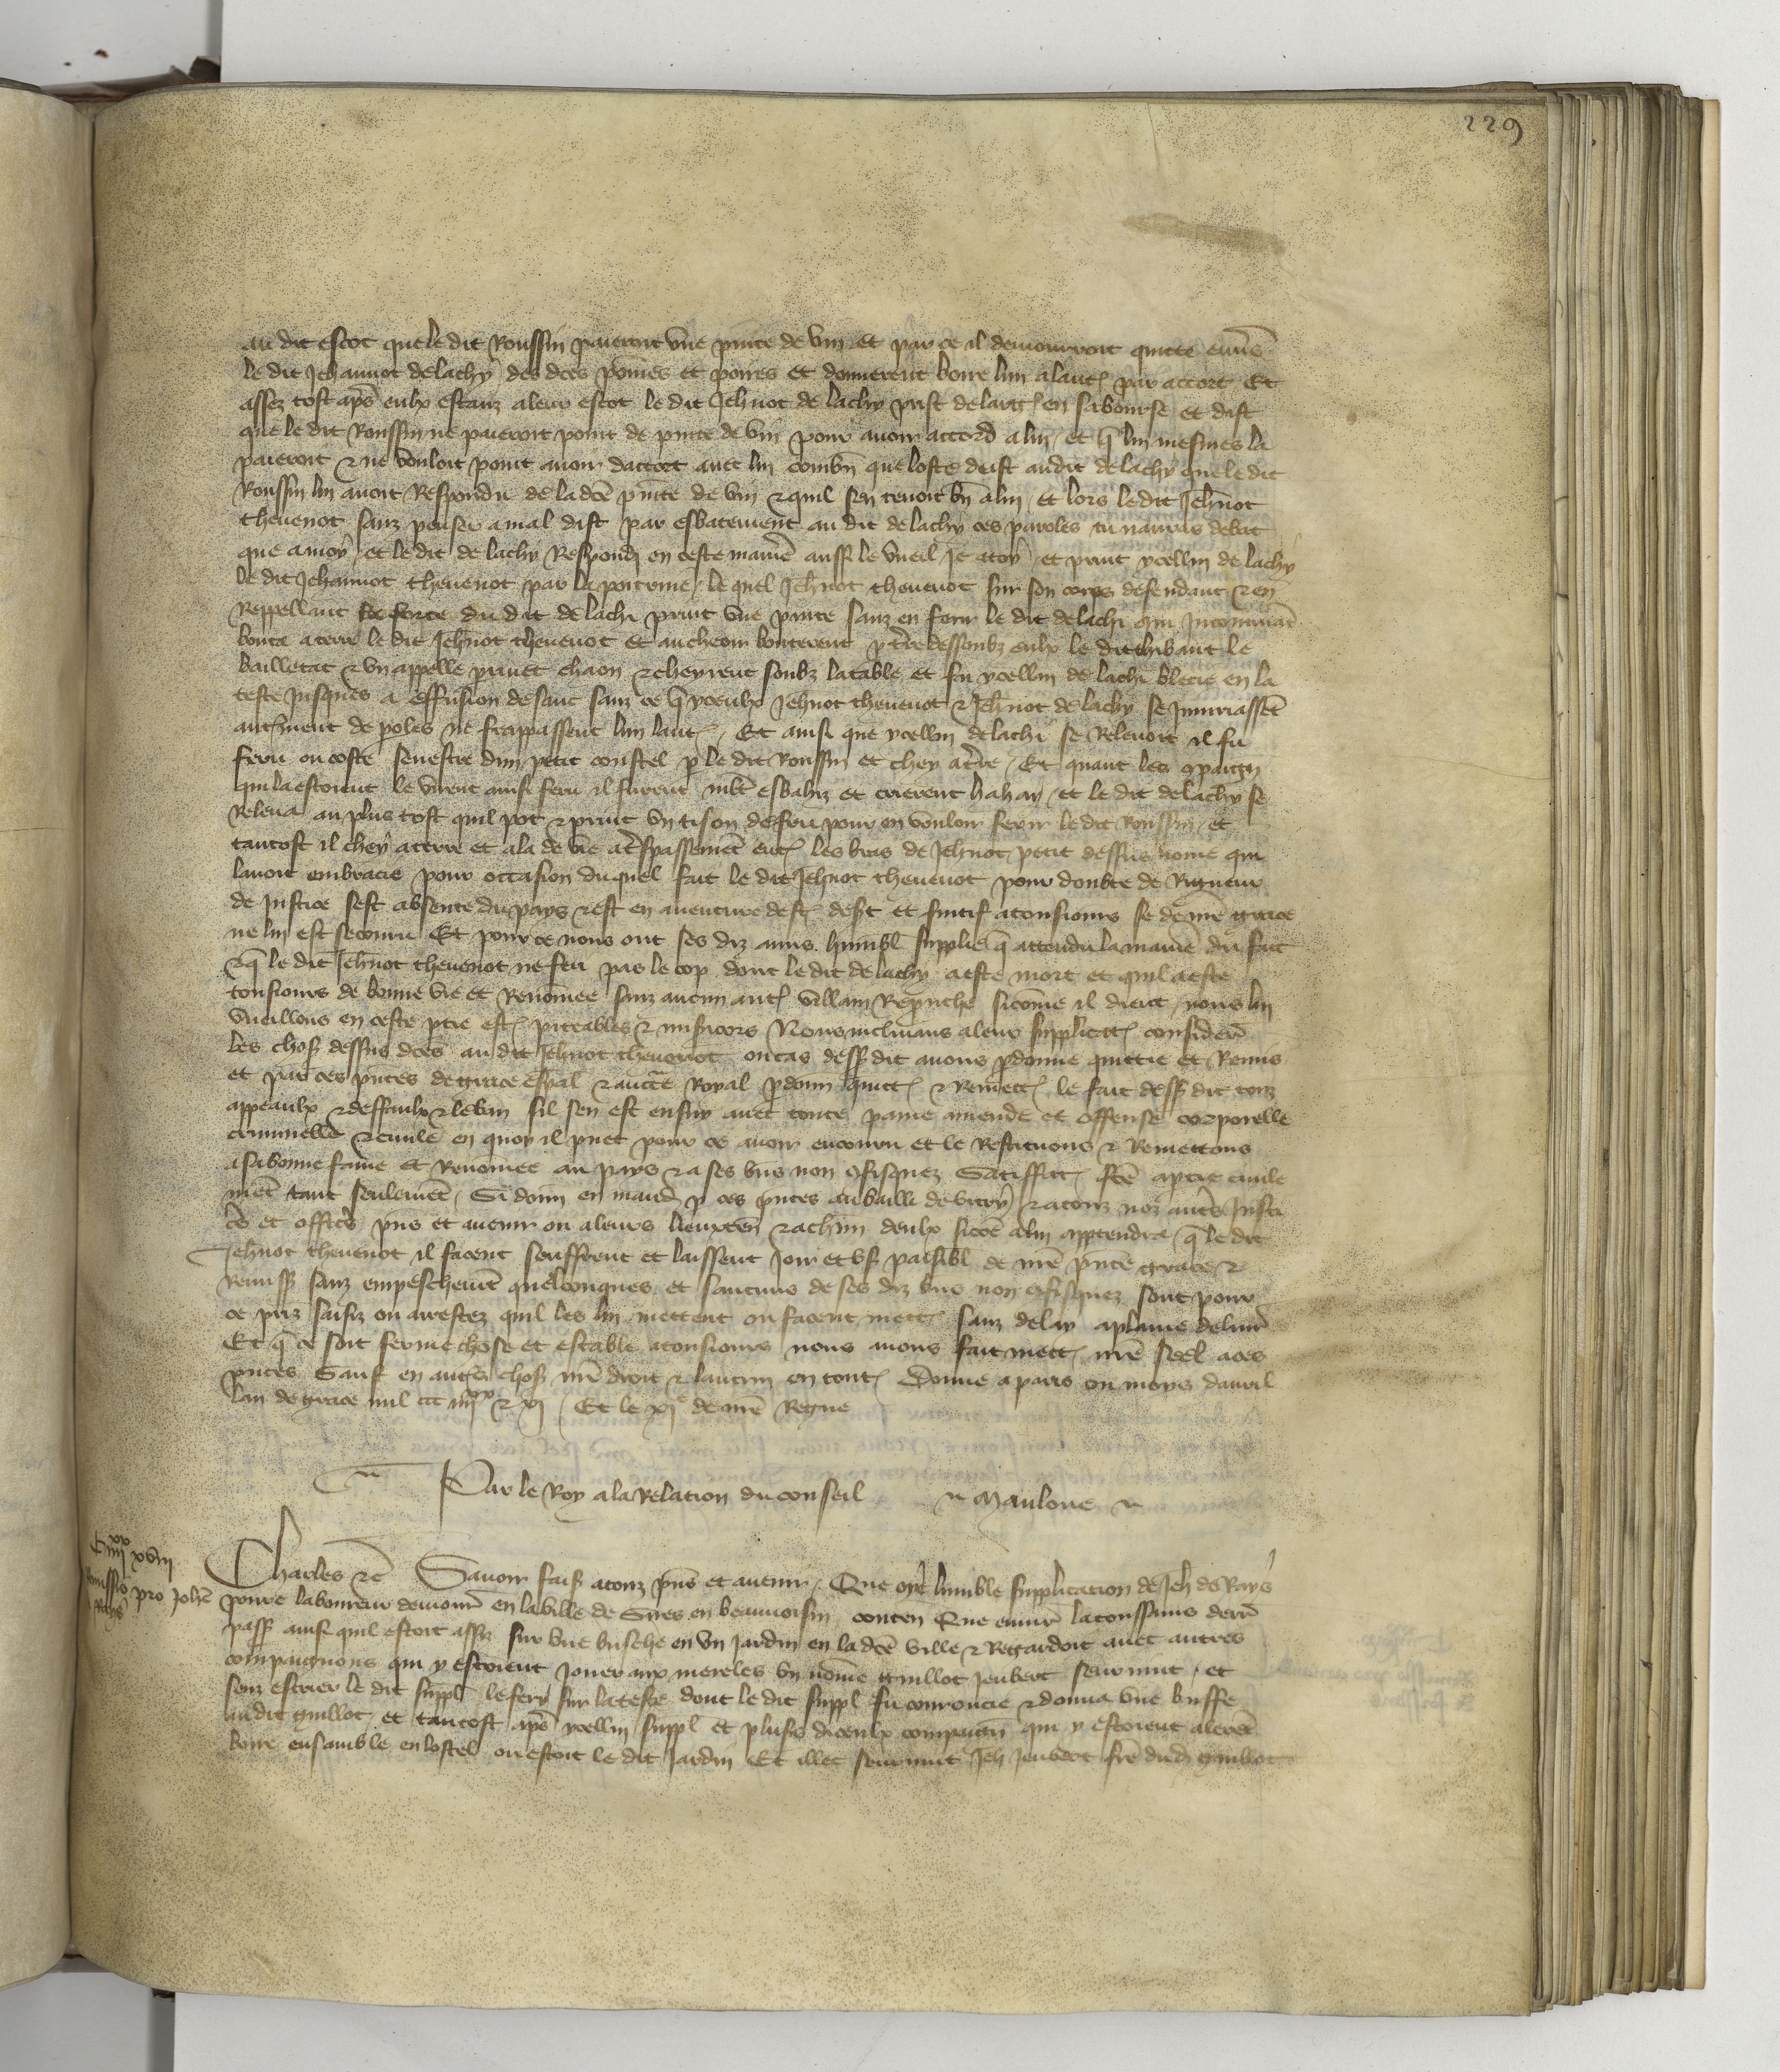 229
au dit escot que le dit Roussin paieroit vne pinte de vin et par ce il demourroit quitte enũs
le dit Jehannot de lachy des dces pomes et poires et donnerent boire lun a laut par accort Et
assez tost aps eulx estanz a leur escot le dit Jehnot de lachy prist de largt en sa bourse et dist
que le dit Roussin ne paieroit point de pinte de vin pour auoir accord a lui et q lui mesmes la
paieroit & ne vouloit point auoir daccort auec lui combn que loste deist au dit de lachy que le dit
Roussin lui auoit Respondu de la dce pinte de vin & quil sen tenoit bn a lui et lors le dit Jehnot
theuenot sanz penser a mal dist par esbatement au dit de lachy ces paroles tu nauras debat
que a moy et le dit de lachy Respondi en ceste maniere aussi le vueil Je a toy et print ycellui de lachy
le dit Jehannot theuenot par la poitrine le quel Jehnot theuenot sur son corps defendant & en
Reppellant la force du dit de lachi print vne pinte sanz en ferir le dit de lachi qui Incontinat
bouta a terre le dit Jehnot theuenot et au cheoir bouterent p tre dessoubz eulx le dit thibaut le
bailletat & vn appelle priuet chaon & cheyrent soubz la table et fu ycellui de lachi blecie en la
teste Jusques a effusion de sanc sanz ce q yceulx Jehnot theuenot & Jehnot de lachy se Iniuriassent
autrement de poles ne frappassent lun laut Et ainsi que ycellui de lachi se Releuoit il fu
feru ou coste senestre dun petit coustel p le dit Roussin et chey a tre Et quant les 9paign
qui la estoient le virent ainsi feru il furent mlt esbahiz et crierent hahay et le dit de lachy se
Releua au plus tost quil pot & print vn tison de feu pour en vouloir ferir le dit Roussin et
tantost il chey a terre et ala de vie a trespassement ent les bras de Jehnot petit dessus nome qui
lauoit embracie pour occasion du quel fait le dit Jehnot theuenot pour doubte de Rigueur
de Justice sest absente du pays & est en auenture dest desert et fuitif a tousiours se de nre grace
ne lui est secouru Et pour ce nous ont ses diz amis humbl supplie q attendu la maniere du fait
& q le dit Jehnot theuenot ne feri pas le cop dont le dit de lachy a este mort et quil a este
tousiours de bonne vie et Renommee sanz aucun aut villain Reprouche sicome il dient nous lui
vueillons en ceste ptie est piteables & misicors Nous inclinans a leur supplicat considere
les chos dessus dces au dit Jehnot theuenot ou cas dess dit auons pdonne quittie et Remis
et par ces pntes de grace espal & aucte Royal pdonn quitt & Remett le fait dess dit touz
appeaulx & deffaulx & le ban sil sen est ensuy auec toute paine amende et offense corporelle
criminelle & ciuile en quoy il puet pour ce auoir encouru et le Restituons & Remettons
a sa bonne fame et Renommee au pays & a ses bns non 9fisquez Satiffact fce a ptie ciuile
ment tant seulement Si donn en mand p ces pntes au bailli de vitry & a touz noz autres Justi
ces et offics pns et auenir ou a leurs lieuxten & a chun deulx sicoe a lui apptendra q le dit
Jehnot theuenot il facent seuffrent et laissent Joir et vs paisibl de nre pnte grace &
Remiss sanz empeschement quelconques et saucuns de ses diz bns non 9fisquez sont pour
ce priz saisiz ou arrestez quil les lui mettent ou facent mett sanz delay a plaine deliure
Et q ce soit ferme chose et estable a tousiours nous auons fait mett nre seel a ces
pntes Sauf en autres chos nre droit & lautrui en tout Donne a paris ou moys dauril
lan de grace mil ccc iiij xx & xj Et le xj e de nre Regne
Par le Roy a la Relation du conseil Maulone
C iiij xx xviii
Remissio pro Johe
de Rays
Charles &c Sauoir fais a touz pns et auenir Que oye lumble supplication de Jeh de Rays
poure laboureur demour en la ville de en beauuoisin conten Que enuir la toussains derr
pass ainsi quil estoit assiz sur vne busche en vn Jardin en la dce ville & Regardoit auec autres
compaignons qui y estoient Jouer aux mereles vn nome guillot Jeubert seuruint et
senz escrier le dit suppl le fery sur la teste dont le dit suppl fu courroucie & donna vne buffe
au dit guillot et tantost aps ycellui suppl et plusrs diceulx compaign qui y estoient alerent
boire ensamble en lostel ou estoit le dit Jardin Et illec seuruint Jeh Jeubert fre dud guillot